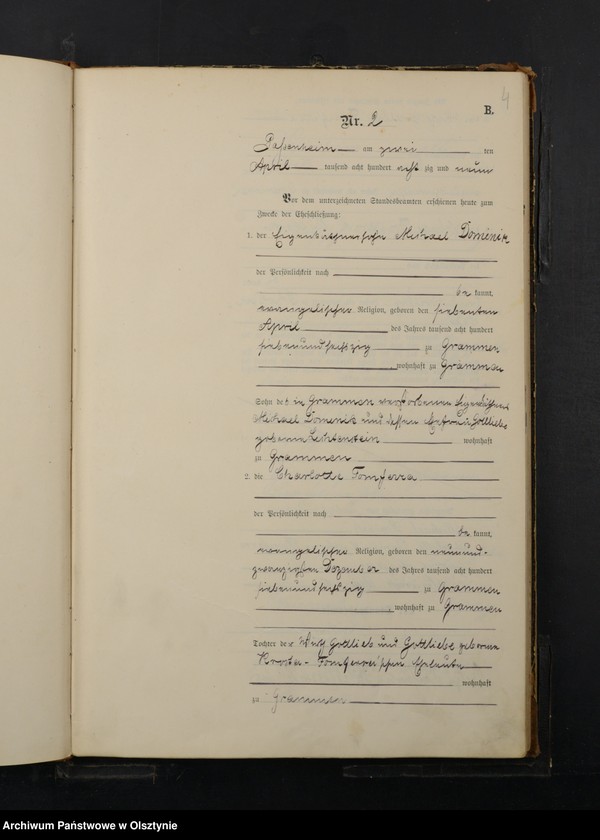 4
B.
Nr. 2
Passenheim am zwei ten
April tausend acht hundert acht zig und neun
Vor dem unterzeichneten Standesbeamten erschienen heute zum
Zwecke der Eheschließung:
1. der Eigenkäthnersohn Michael Domenik
der Persönlichkeit nach
be kannt,
evangelischer Religion, geboren den siebenten
April des Jahres tausend acht hundert
siebenundsechszig zu Grammen
, wohnhaft zu Grammen
Sohn des in Grammen verstorbenen
Michael Domenik und dessen Ehefrau Gottliebe
geborene Lichtenstein wohnhaft
zu Grammen
2. die Charlotte
der Persönlichkeit nach
be kannt,
evangelischer Religion, geboren den neunund-
zwanzigsten Dezember des Jahres tausend acht hundert
siebenundsechszig zu Grammen
, wohnhaft zu Grammen
Tochter der Gottlieb und Gottliebe geborene
Eheleute
wohnhaft
zu Grammen
Archiwum Państwowe w Olsztynie